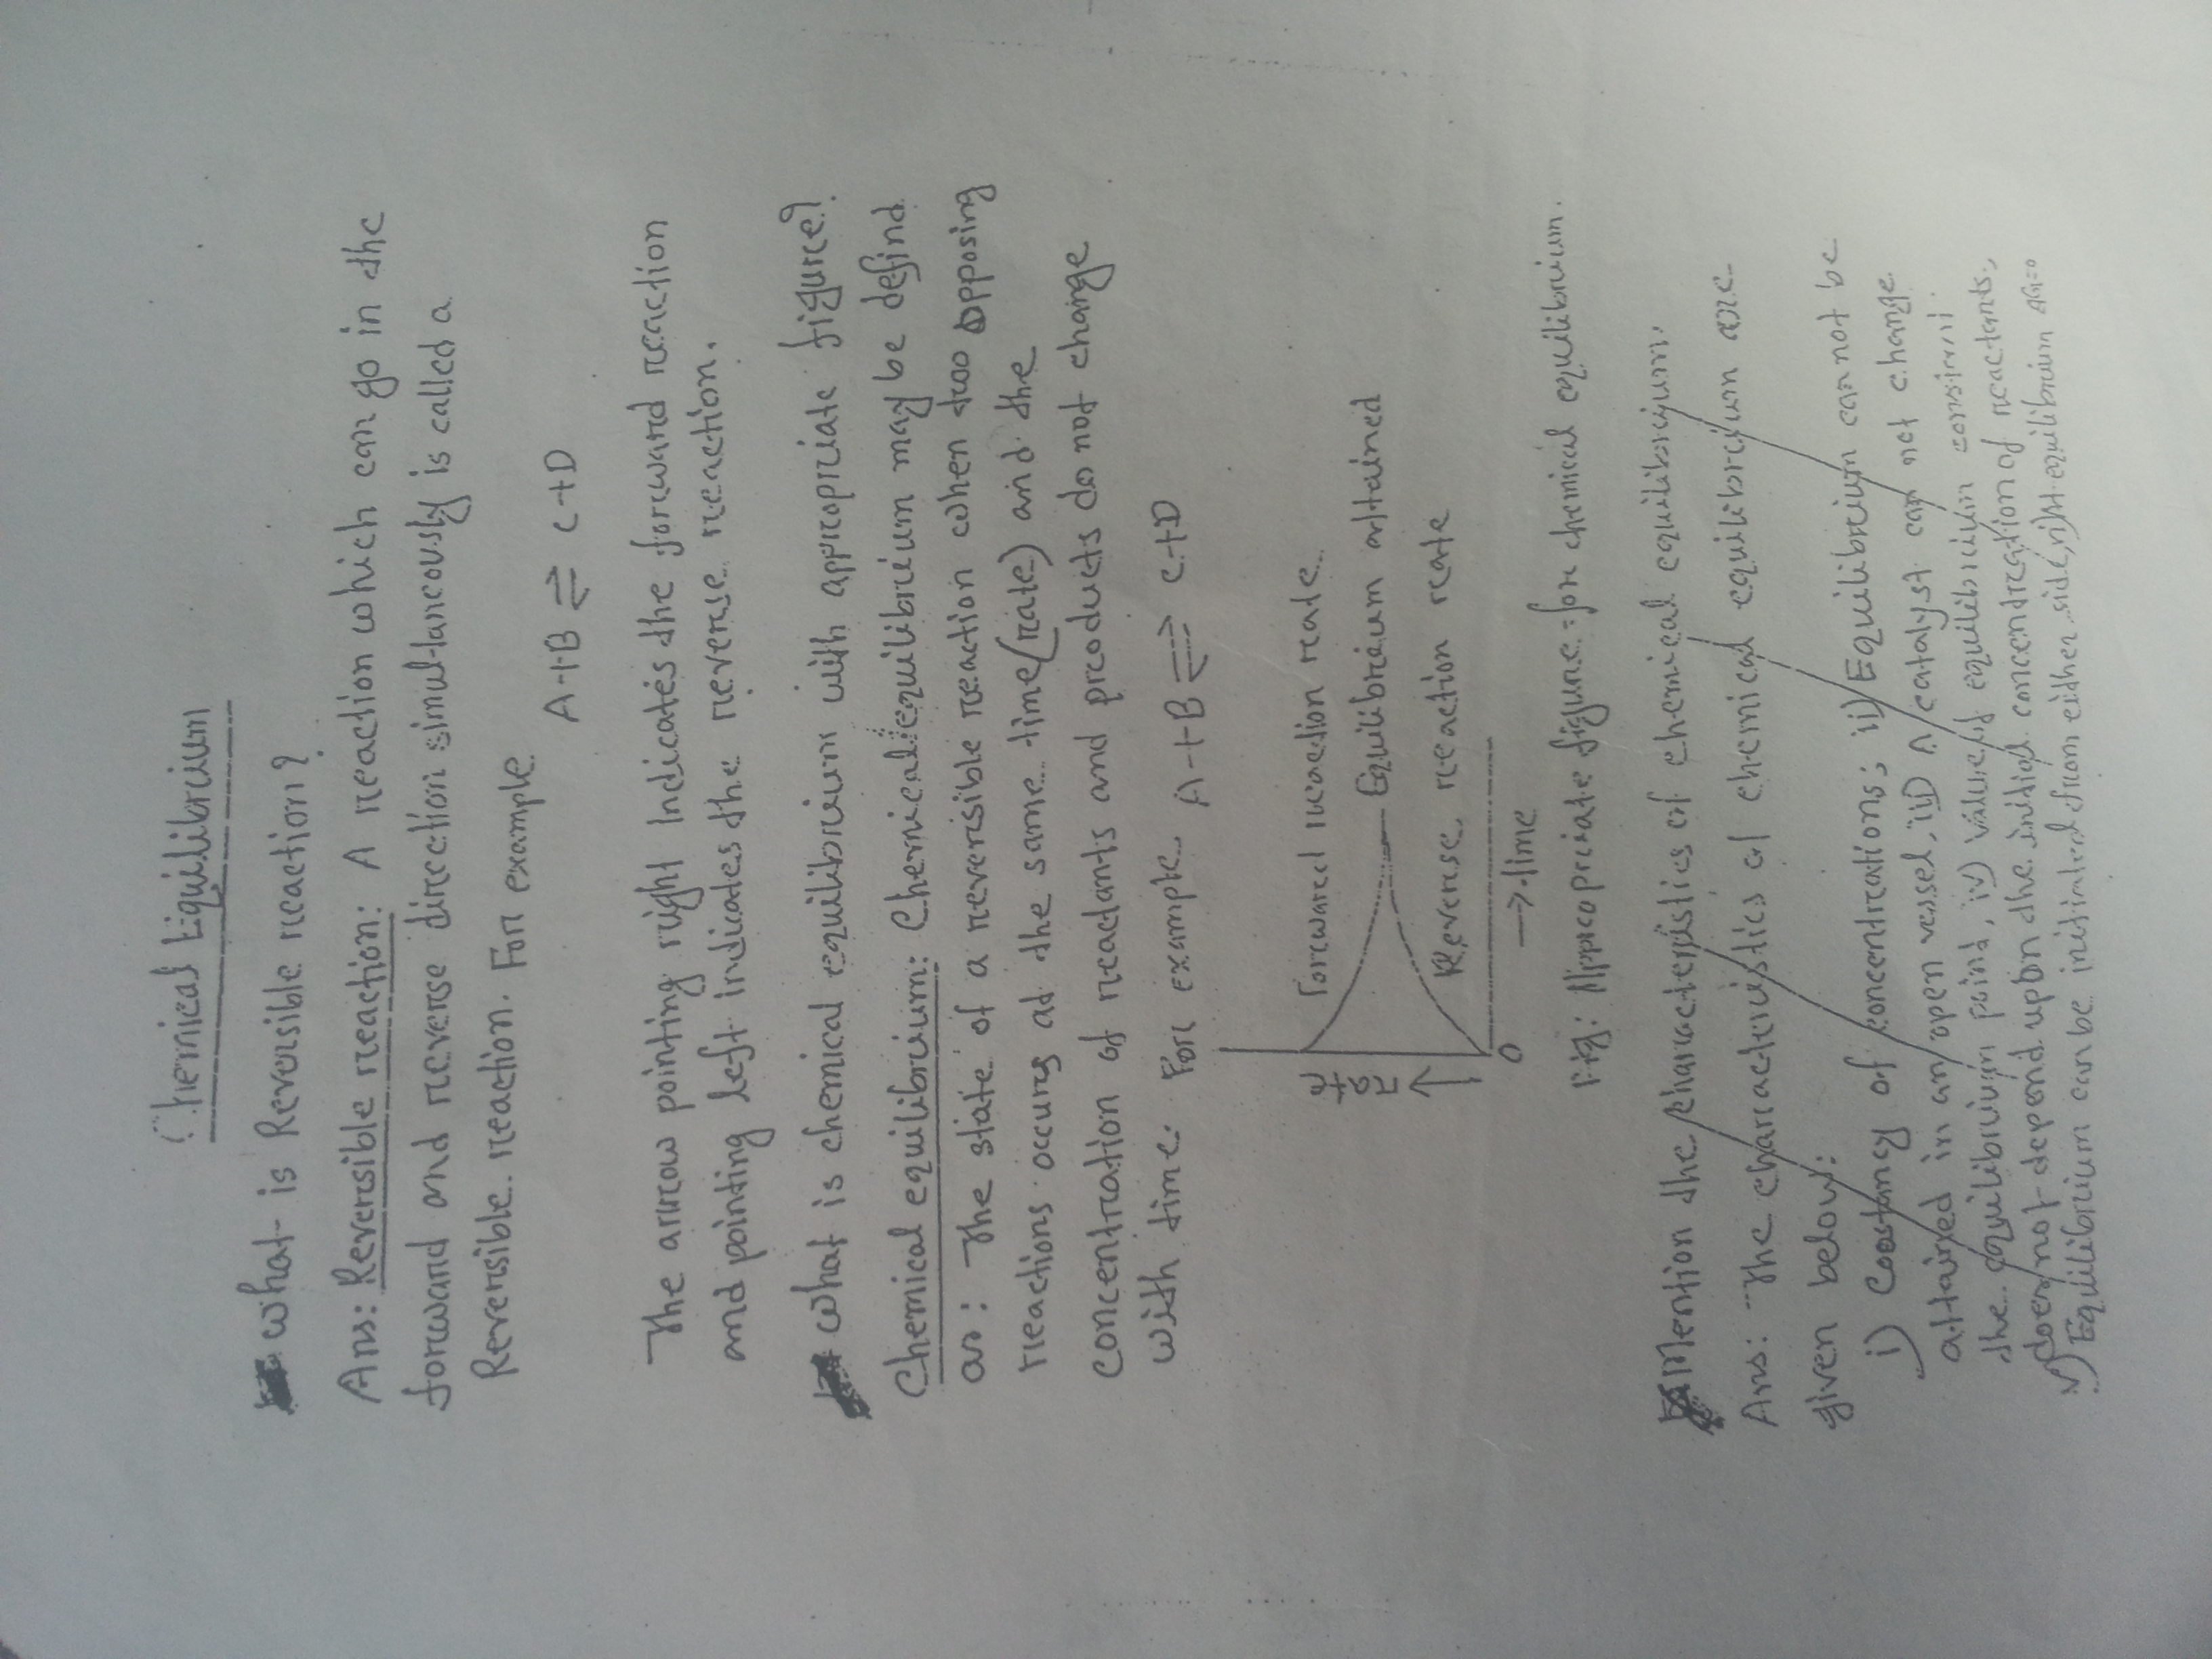 Chemical Equilibrium
What is Reversible reaction?
Ans: Reversible reaction: A reaction which can go in the
forward and reverse direction simultaneously is called a
Reversible reaction. For example
A+B ⇌ C+D
The arrow pointing right Indicates the forward reaction
and pointing left indicates the reverse reaction.
What is chemical equilibrium with appropriate figure?
Chemical equilibrium: Chemical equilibrium may be defind
as: The state of a reversible reaction when two opposing
reactions occurs at the same time (rate) and the
concentration of reactants and products do not change
with time. For example A+B ⇌ C+D
Forward reaction rate
→ rate
Equilibrium attained
Reverse reaction rate
0
→ time
Fig: Appropriate figure for chemical equilibrium.
Mention the characteristics of chemical equilibrium.
Ans: The characteristics of chemical equilibrium are
given below:
i) Constancy of concentrations; ii) Equilibrium cannot be
attained in an open vessel, iii) A catalyst can not change
the equilibrium point, iv) Value of equilibrium constant
does not depend upon the initial concentration of reactants,
v) Equilibrium can be initiated from either side, vi) At equilibrium ΔG=0